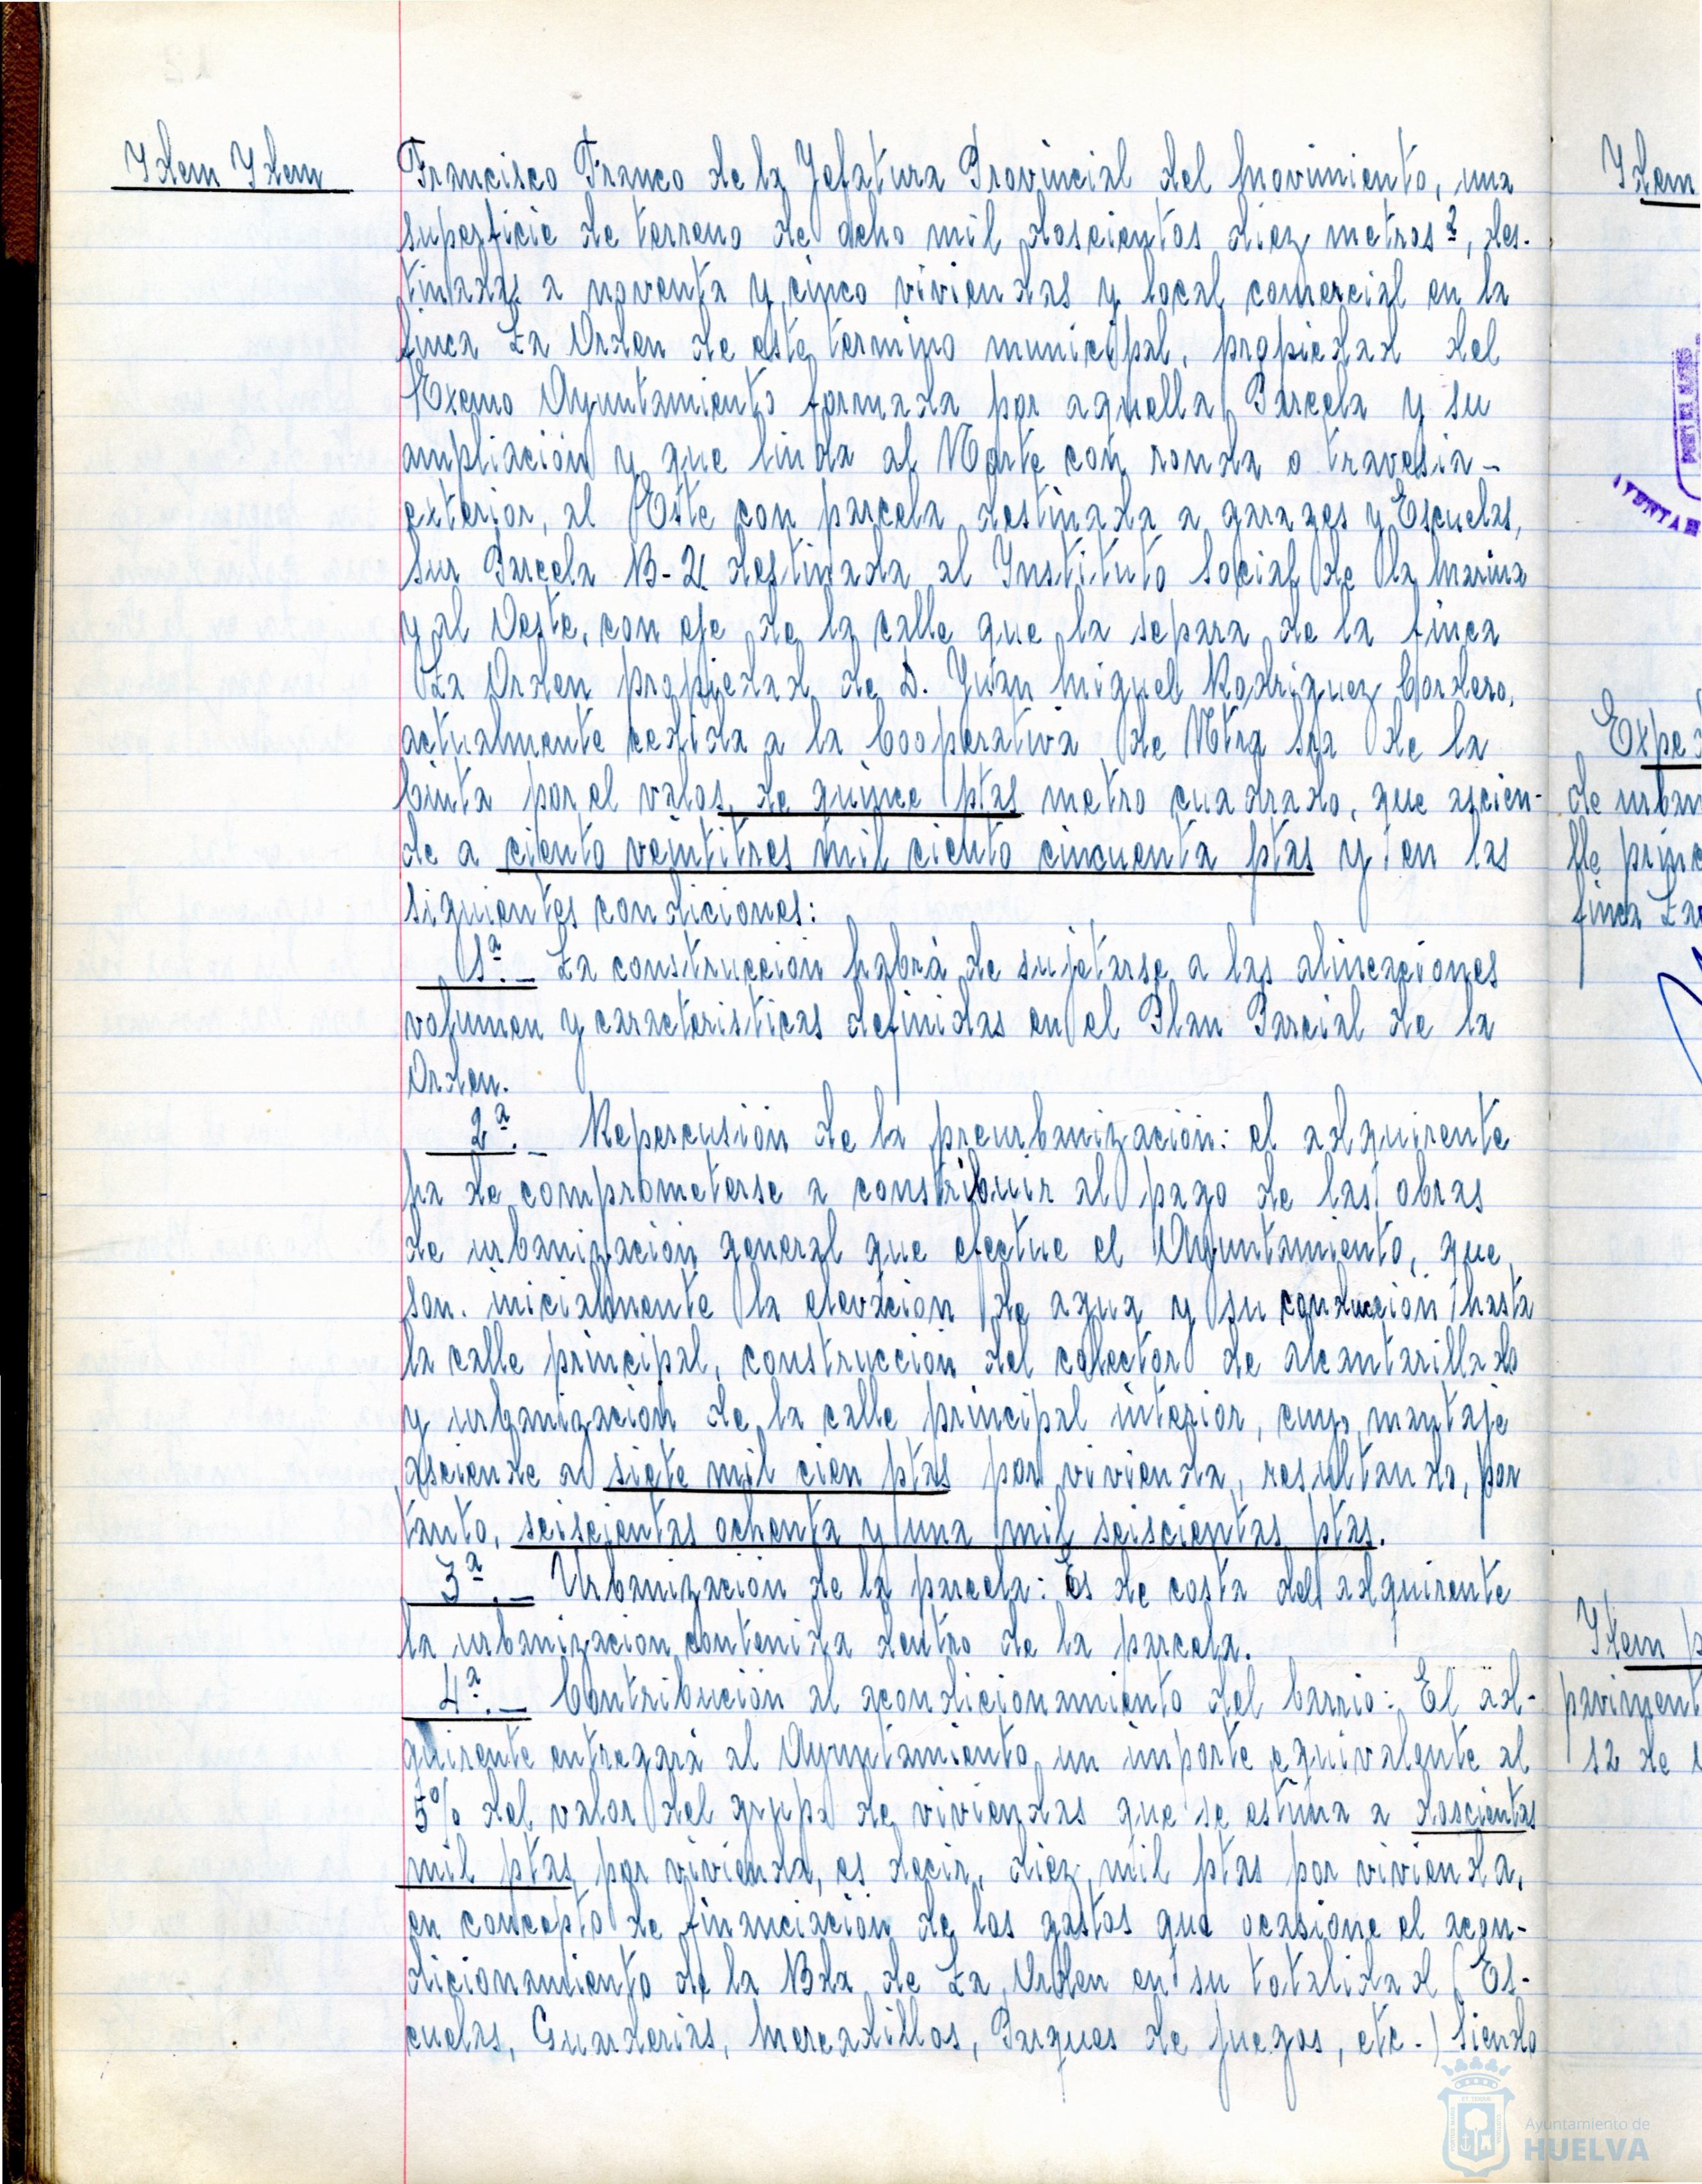 Ydem Ydem
Francisco Franco de la Jefatura Provincial del Movimiento, una
superficie de terreno de ocho mil doscientos diez metros 2, des-
tinadas a noventa y cinco viviendas y local comercial en la
finca La Orden de este termino municipal, propiedad del
Excmo Ayuntamiento formada por aquella Parcela y su
ampliación y que linda al Norte con ronda o travesia-
exterior, al Este con parcela destinada a garages y Escuelas,
Sur Parcela B-21 destinada al Ynstituto Social de la Marina
y al Oeste, con eje de la calle que la separa de la finca
La Orden propiedad de D. Juan Miguel Rodriguez Cordero,
actualmente cedida a la Cooperativa de Ntra Sra de la
Cinta por el valor de quince ptas metro cuadrado, que ascien-
de a ciento veintitres mil ciento cincuenta ptas y en las
siguientes condiciones:
1ª.- La construcción habrá de sujetarse a las alineaciones
volumen y caracteristicas definidas en el Plan Parcial de la
Orden.
2ª.- Repercusión de la preurbanización: el adquirente
ha de comprometerse a constribuir al pago de las obras
de urbanización general que efectue el Ayuntamiento, que
son. inicialmente la elevación de agua y su conducción hasta
la calle principal, construcción del colector de alcantarillado
y urbanización de la calle principal interior, cuyo montaje
asciende a siete mil cien ptas por vivienda, resultando, por
tanto, seiscientas ochenta y una mil seiscientas ptas.
3ª.- Urbanización de la parcela: Es de costa del adquirente
la urbanizacion contenida dentro de la parcela.
4ª.- Contribución al acondicionamiento del barrio: El ad-
quirente entregará al Ayuntamiento un importe equivalente al
5% del valor del grupo de viviendas que se estima a doscientas
mil ptas por vivienda, es decir, diez mil ptas por vivienda,
en concepto de financiación de los gastos que ocasione el acon-
dicionamiento de la Bda de La Orden en su totalidad (Es-
cuelas, Guarderias, Mercadillos, Parques de juegos, etc.) Siendo
Ydem
AYUNTAM
Expe
de urban
lle princ
finca La
Ydem p
paviment
12 de
Ayuntamiento de
HUELVA